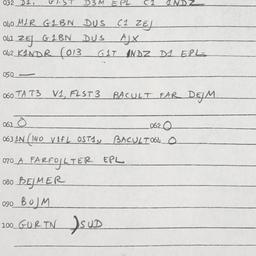 040 MIR G1BN DUS C1 ZEJ
041 ZEJ G1BN DUS AJX
042 K1NDR (013 G1T INDZ D1 EPL
050 —
060 TAT3 V1, FLST3 BACULT FAR DEJM
061 O 062 O
063 1N (140 V1FL OST1N BACULT 064 O
070 A FARFOJLTER EPL
080 BEJMER
090 BOJM
100 GURTN )SUD